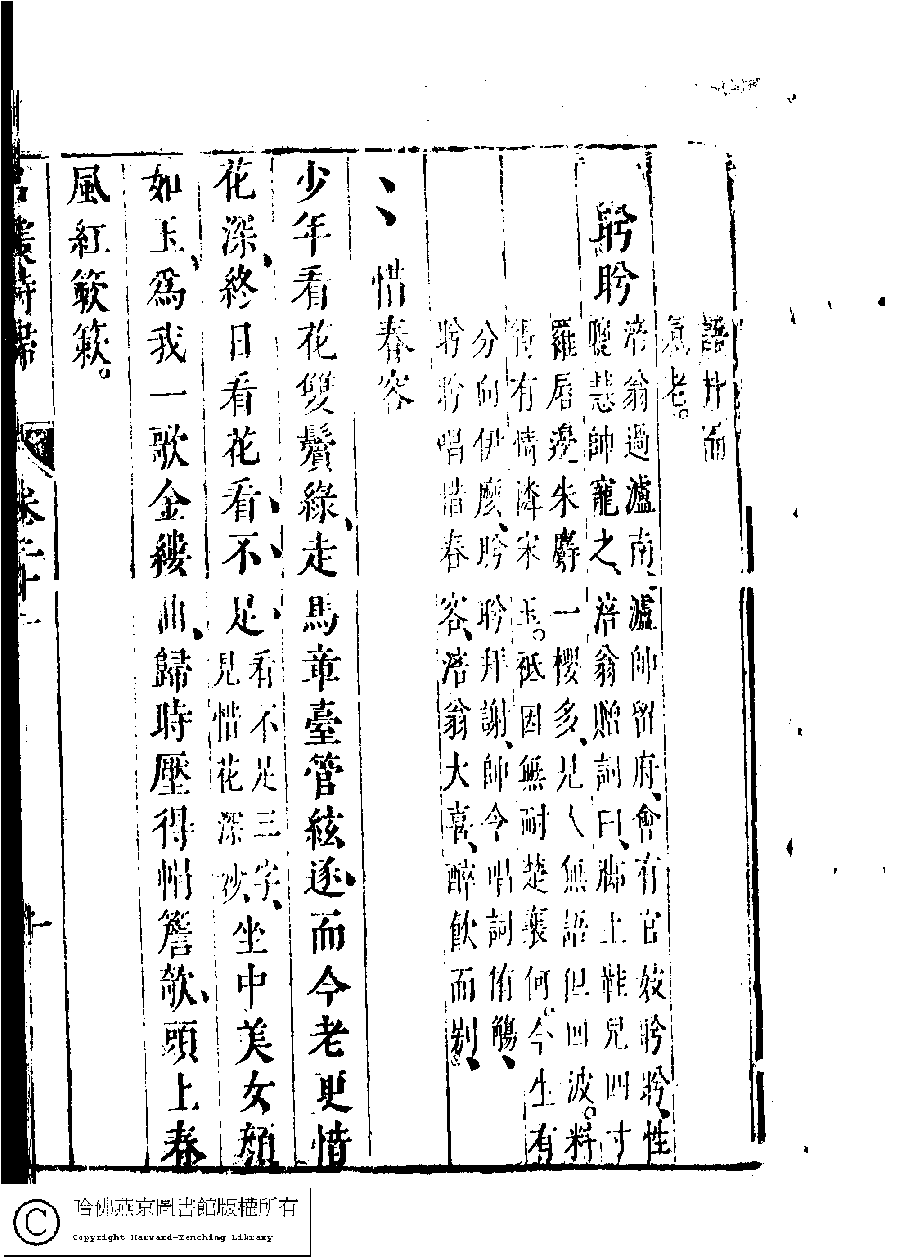 語朴而
氣老。
盼盼
涪翁過瀘南、瀘帥留府、會有官妓盼盼、性
聰慧帥寵之、涪翁贈詞曰、腳上鞋兒四寸
羅唇邊朱麝一櫻多、見人無語但回波。料
得有情憐宋玉。祗因無耐楚襄何。今生有
分向伊麼、盼盼拜謝、帥令唱詞侑觴、
盼盼唱惜春容、涪翁大喜、醉飲而別、
惜春容
少年看花雙鬢綠、走馬章臺管絃逐、而今老更惜
花深、終日看花看、不、足、看不足三字、見惜花深妙、坐中美女顏
如玉、爲我一歌金縷曲、歸時壓得帽簷欹、頭上春
風紅簌簌。
名媛詩歸
卷二十一
哈佛燕京圖書館版權所有
Copyright Harvard-Yenching Library